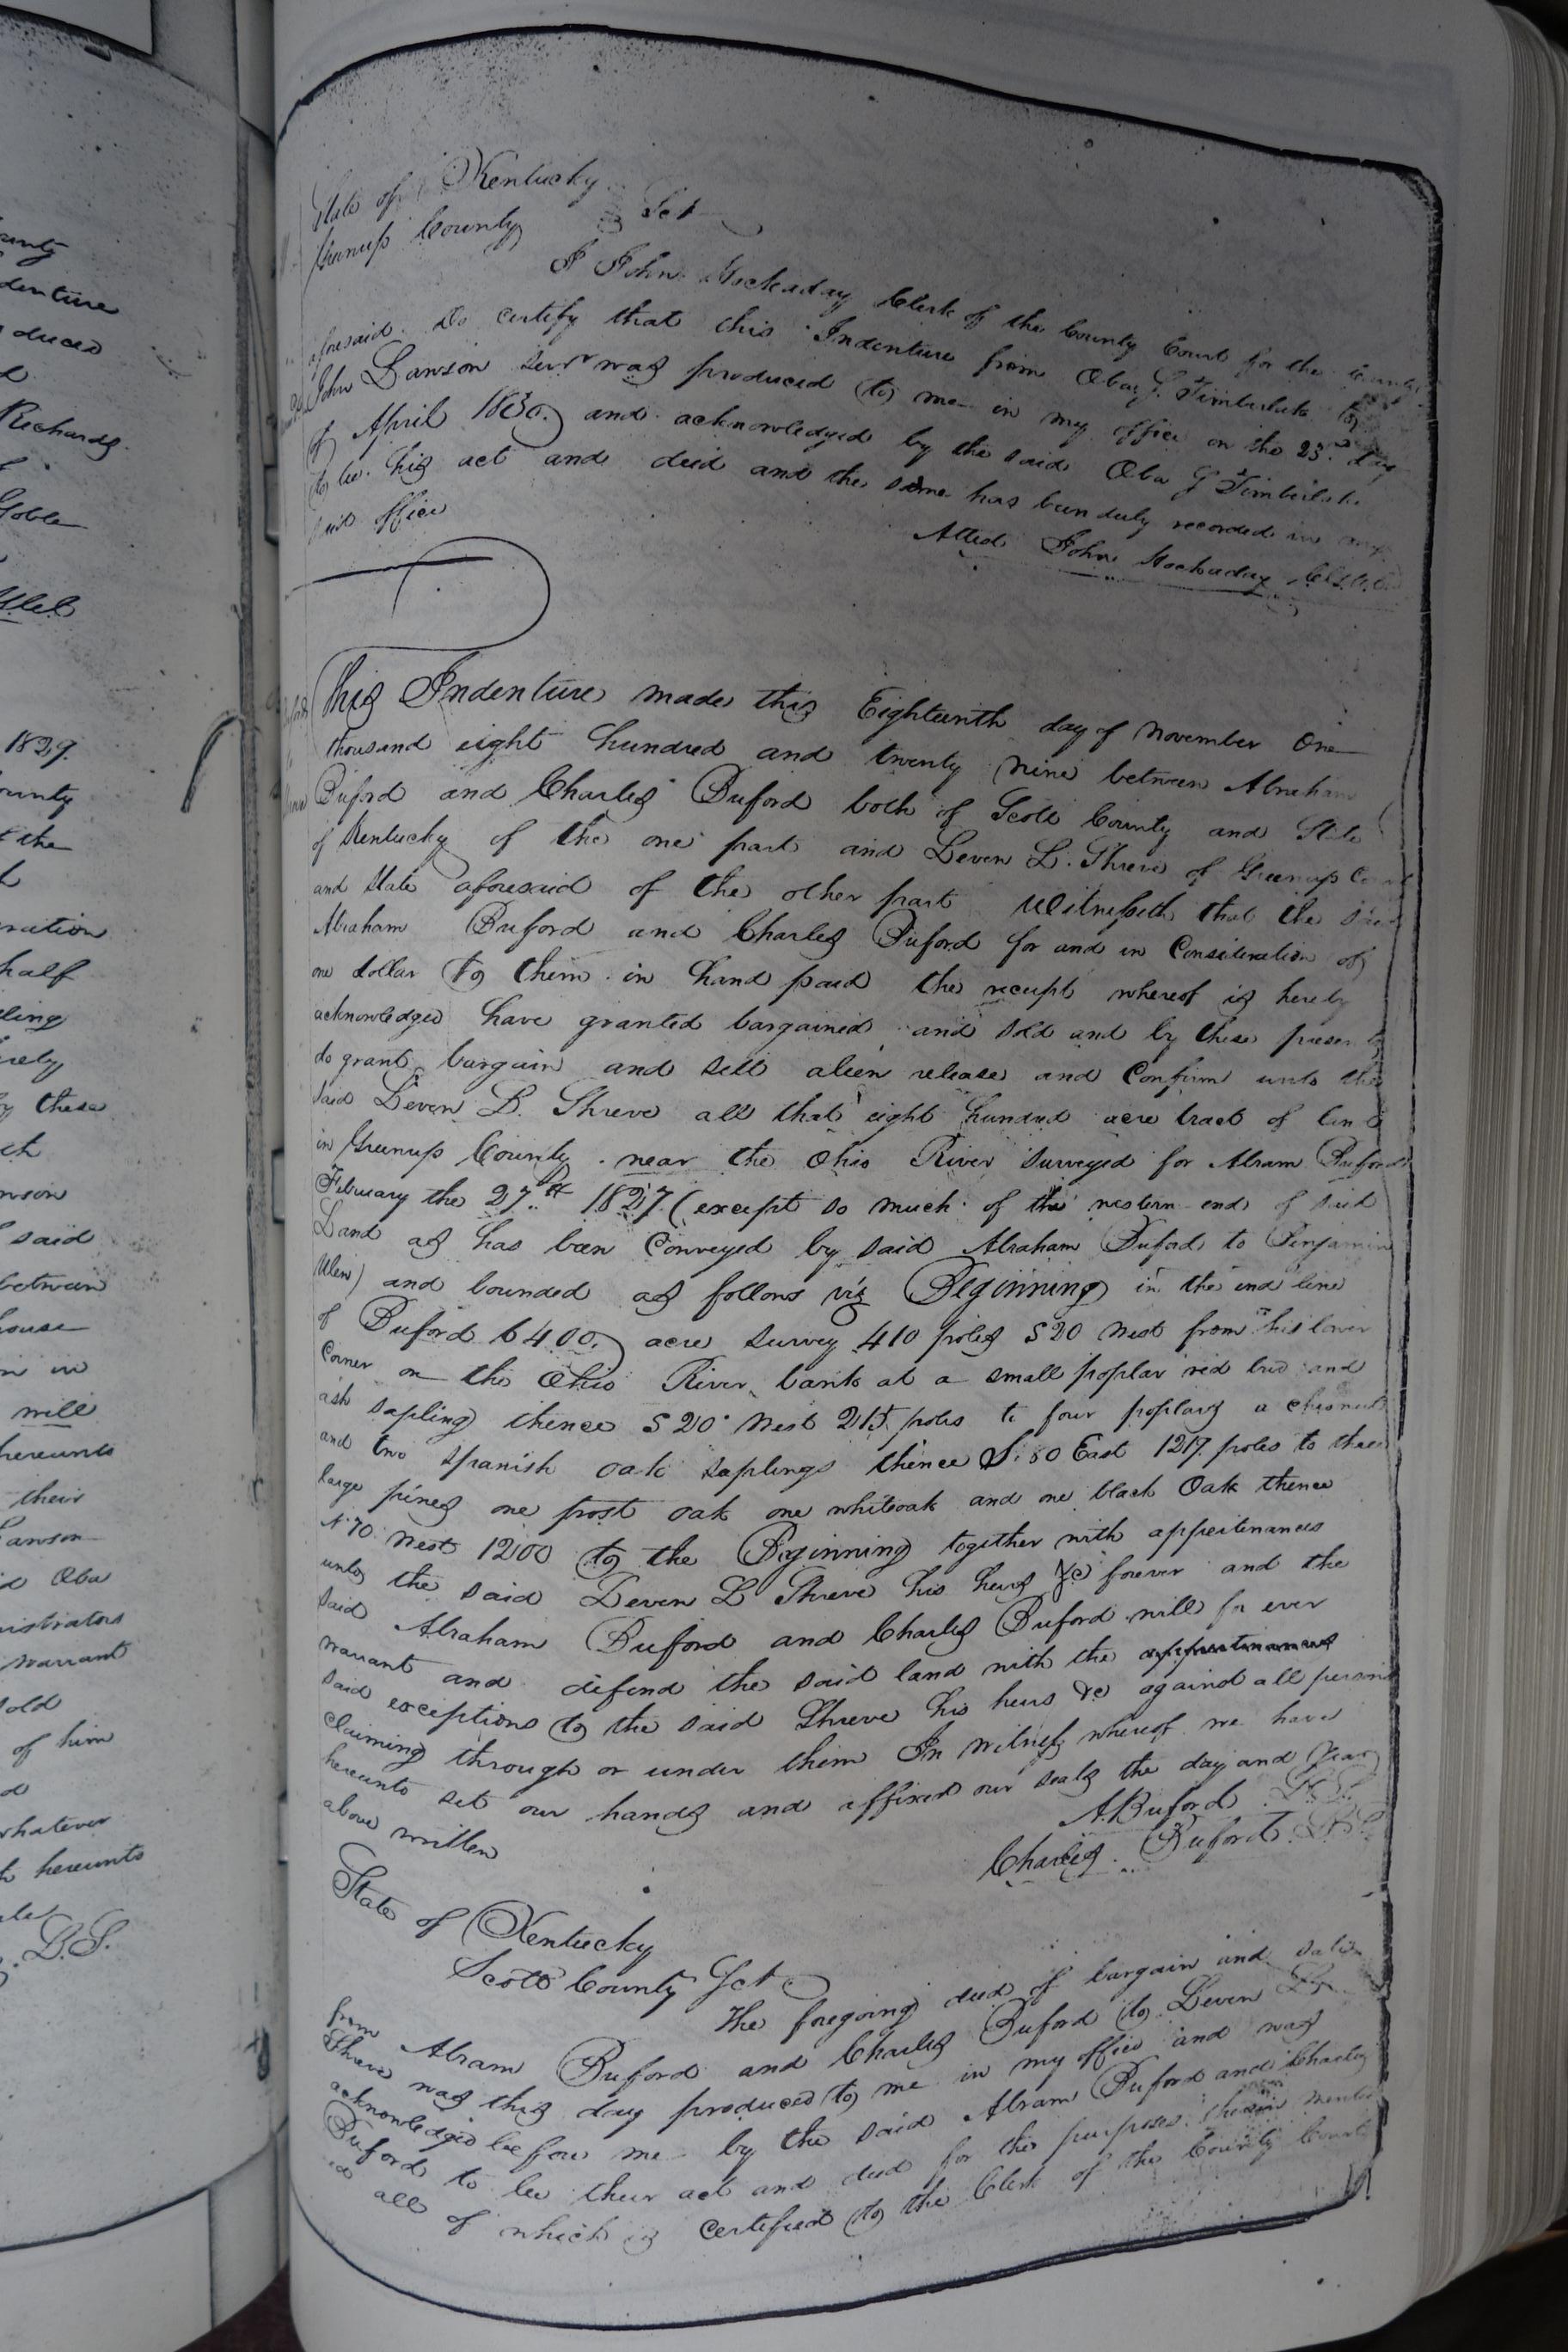 unty
denture
duced
Richards
Goble
1829.
ounty
t the
ration
half
ling
these
ch
said
between
house
in
will
hereunto
their
Lawson
Oba
nistrators
warrant
sold
of him
d
whatever
h hereunto
L.S.
State of Kentucky
Greenup County Sct
I John Hockaday Clerk of the County Court for the County
aforesaid Do certify that this Indenture from Oba G. Timberlake to
John Lawson Senr was produced to me in my office on the 23rd day
of April 1830. and acknowledged by the said Oba G Timberlake
to be his act and deed and the same has been duly recorded in my
said office
Atted John Hockaday
This Indenture made this Eighteenth day of November One
thousand eight hundred and twenty nine between Abraham
Buford and Charles Buford both of Scott County and State
of Kentucky of the one part and Leven L. Shreve of Greenup
and State aforesaid of the other part Witnesseth that the said
Abraham Buford and Charles Buford for and in Consideration of
one dollar to them in hand paid the receipt whereof is hereby
acknowledged have granted bargained and sold and by these presents
do grant bargain and sell alien release and Confirm unto the
said Leven L. Shreve all that eight hundred acre tract of land
in Greenup County near the Ohio River Surveyed for Abram Buford
February the 27th 1827 (except so much of the western end of said
Land as has been Conveyed by said Abraham Buford to Benjamin
Ulen) and bounded as follows viz Beginning in the end line
of Buford 6400. acre survey 410 poles S 20 West from his lower
Corner on the Ohio River bank at a small poplar red bud and
ash sapling thence S 20 West 215 poles to four poplars a chesnut
and two Spanish oak saplings thence S. 80 East 1217 poles to three
large pines one post oak one whiteoak and one black Oak thence
N 70 West 1200 to the Beginning together with appeitenances
unto the said Leven L Shreve his heirs &c forever and the
said Abraham Buford and Charles Buford will for ever
warrant and defend the said land with the appurtinances
said exceptions to the said Shreve his heirs &c against all persons
claiming through or under them In witness whereof we have
hereunto set our hands and affixed our seals the day and year
above written
A. Buford L.S.
Charles Buford L.S.
State of Kentucky
Scott County Sct
The foregoing deed of bargain and sale
from Abram Buford and Charles Buford to Leven L.
Shreve was this day produced to me in my office and was
acknowledged before me by the said Abram Buford and Charles
Buford to be their act and deed for the purposes therein mention
ed all of which is certified to the Clerk of the County Court